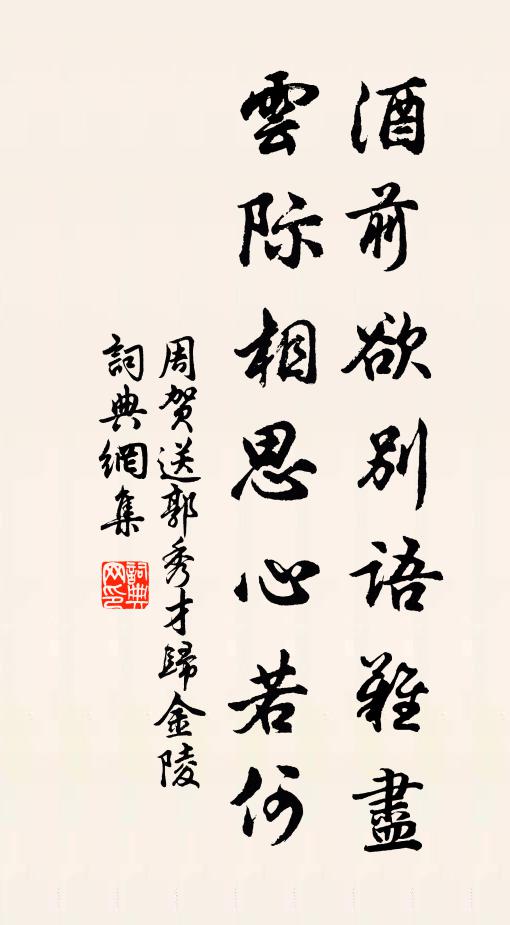 酒前欲别語難盡
雲际相思心若何
周贺送郭秀才歸金陵
詞典網集
詞典网印